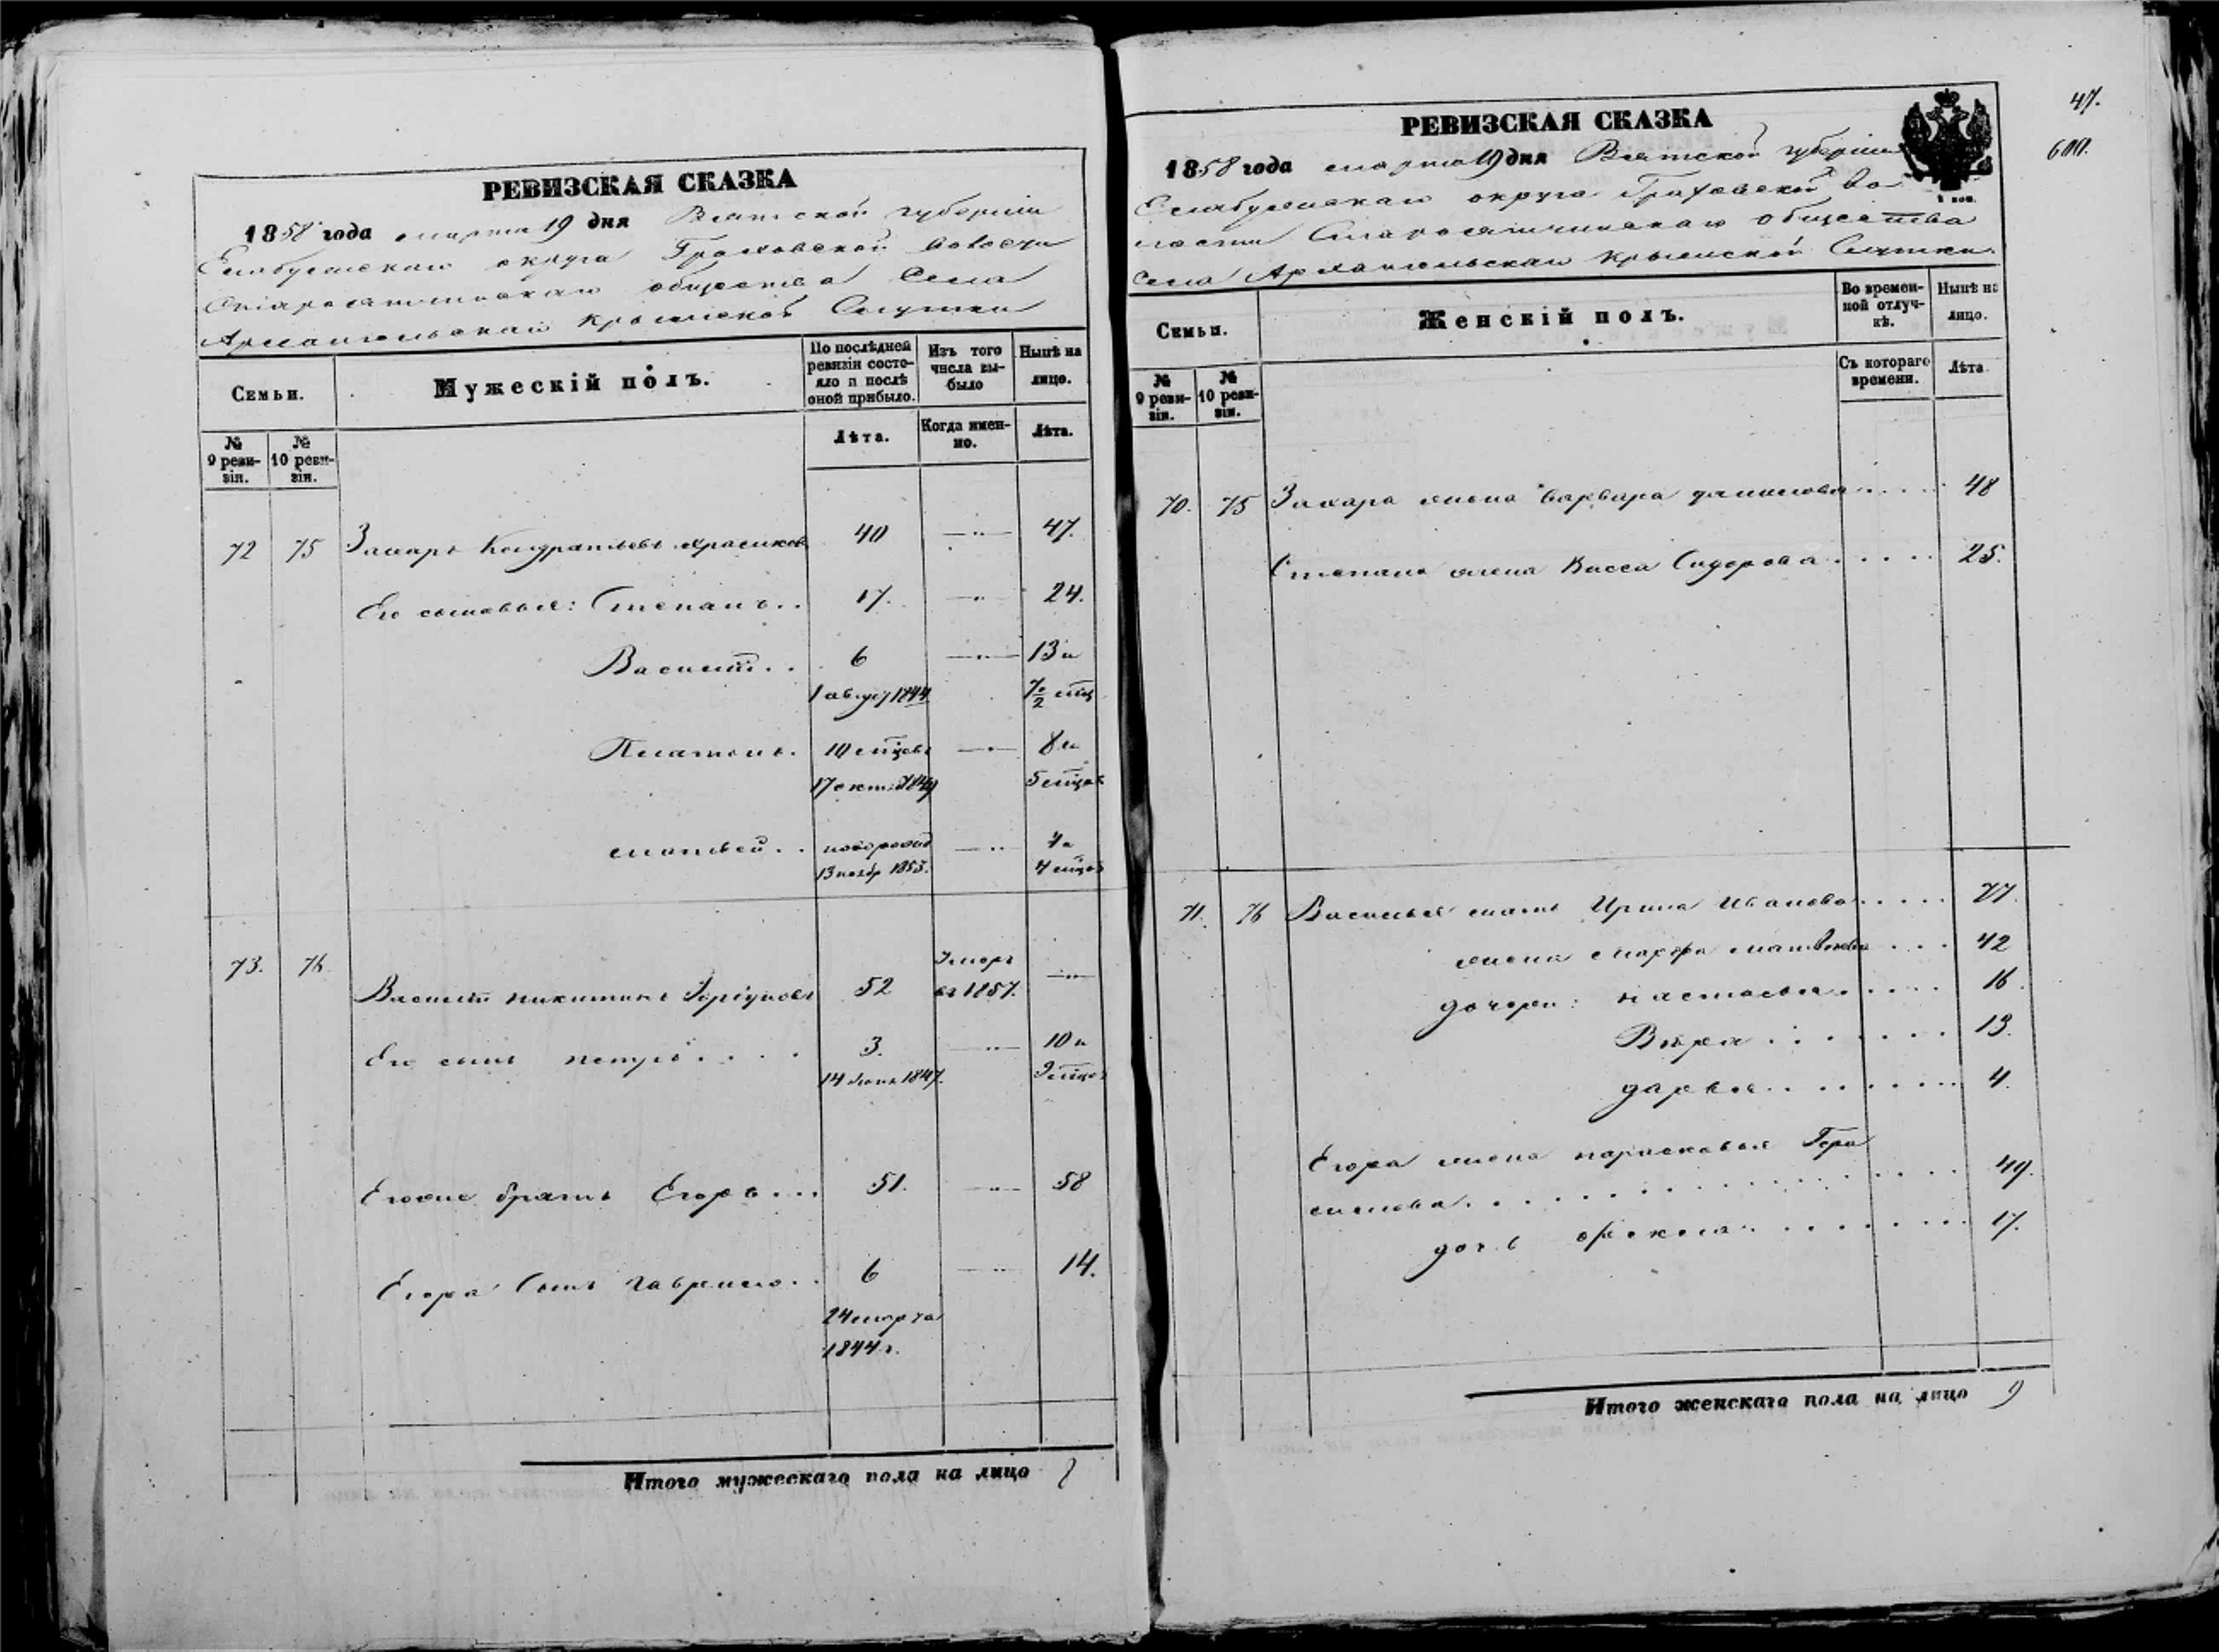 РЕВИЗСКАЯ СКАЗКА
1858 года марта 19 дня Вятской губернии
Елабужскаго округа Граховской волости
общества Села
Архангельскаго Крымской Слутки
Семьи.
Мужескій полъ.
По послѣдней ревизіи состояло и послѣ оной прибыло.
Изъ того числа выбыло
Нынѣ на лицо.
№ 9 ревизіи.
№ 10 ревизіи.
Лѣта.
Когда именно.
Лѣта.
72 75 Захаръ Кондратьевъ 40 —„— 47.
Его сыновья: Степанъ.. 17. —„— 24.
Василій.. 6 —„— 13 и
1 август 1844 7 1/2 мѣц
Платонъ. 10 мѣцовъ —„— 8 и
17 октяб 1849 5 мѣцов
Матвей.. новорожд —„— 4 и
13 ноябр 1853. 4 мѣцов
73. 76.
Василій Никитинъ 52 Умеръ въ 1857. —„—
Его сынъ Петръ.... 3. —„— 10 и
14 июня 1847. 9 мѣцов
Егоже братъ Егоръ... 51. —„— 58
Егора сынъ Гаврило.. 6 —„— 14.
24 марта
1844 г.
Итого мужескаго пола на лицо 7
47.
600.
РЕВИЗСКАЯ СКАЗКА
1858 года марта 19 дня Вятской губернии
Елабужскаго округа Граховской во
лости общества
села Архангельскаго Крымской Слутки.
1 коп.
Семьи.
Женскій полъ.
Во временной отлучкѣ.
Нынѣ на лицо.
№ 9 ревизіи.
№ 10 ревизіи.
Съ котораго времени.
Лѣта.
70. 75 Захара жена Варвара Данилова.... 48
Степана жена Васса Сидорова..... 25.
71. 76 Васильея мать Ирина Иванова..... 77.
жена Марфа Матвеева... 42
дочери: Настасья..... 16.
Вѣра....... 13.
Дарья........ 4.
Егора жена Парасковья Гера
симова............... 49.
дочь Фекла......... 17.
Итого женскаго пола на лицо 9